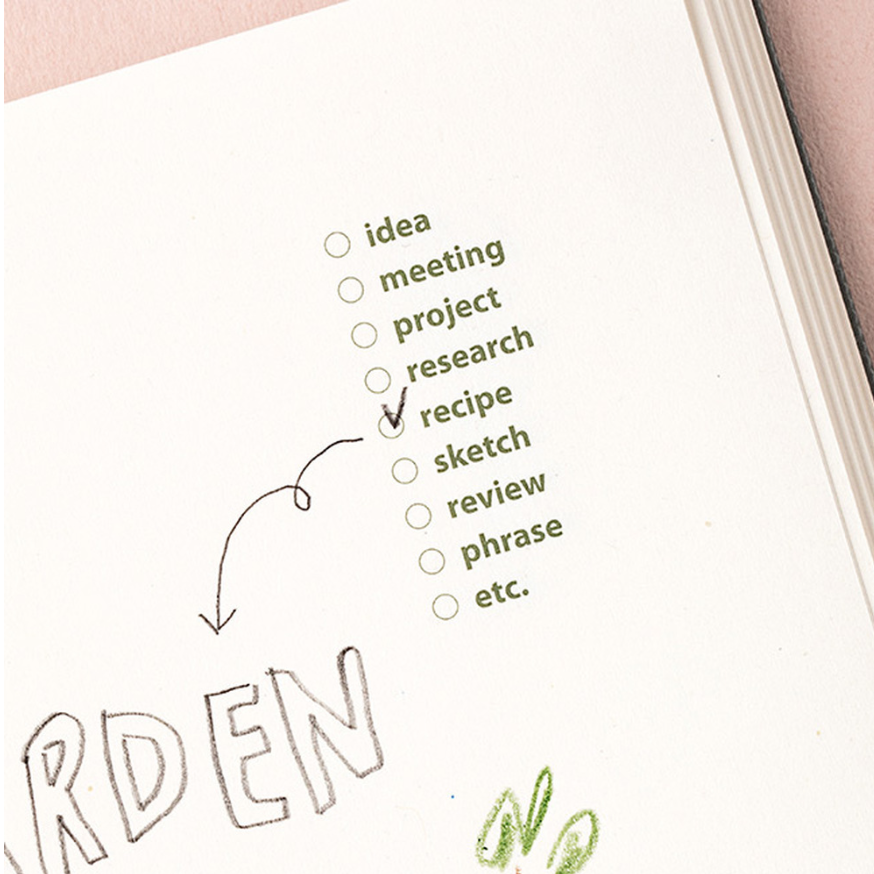 idea
meeting
project
research
recipe
sketch
review
phrase
etc.
ARDEN